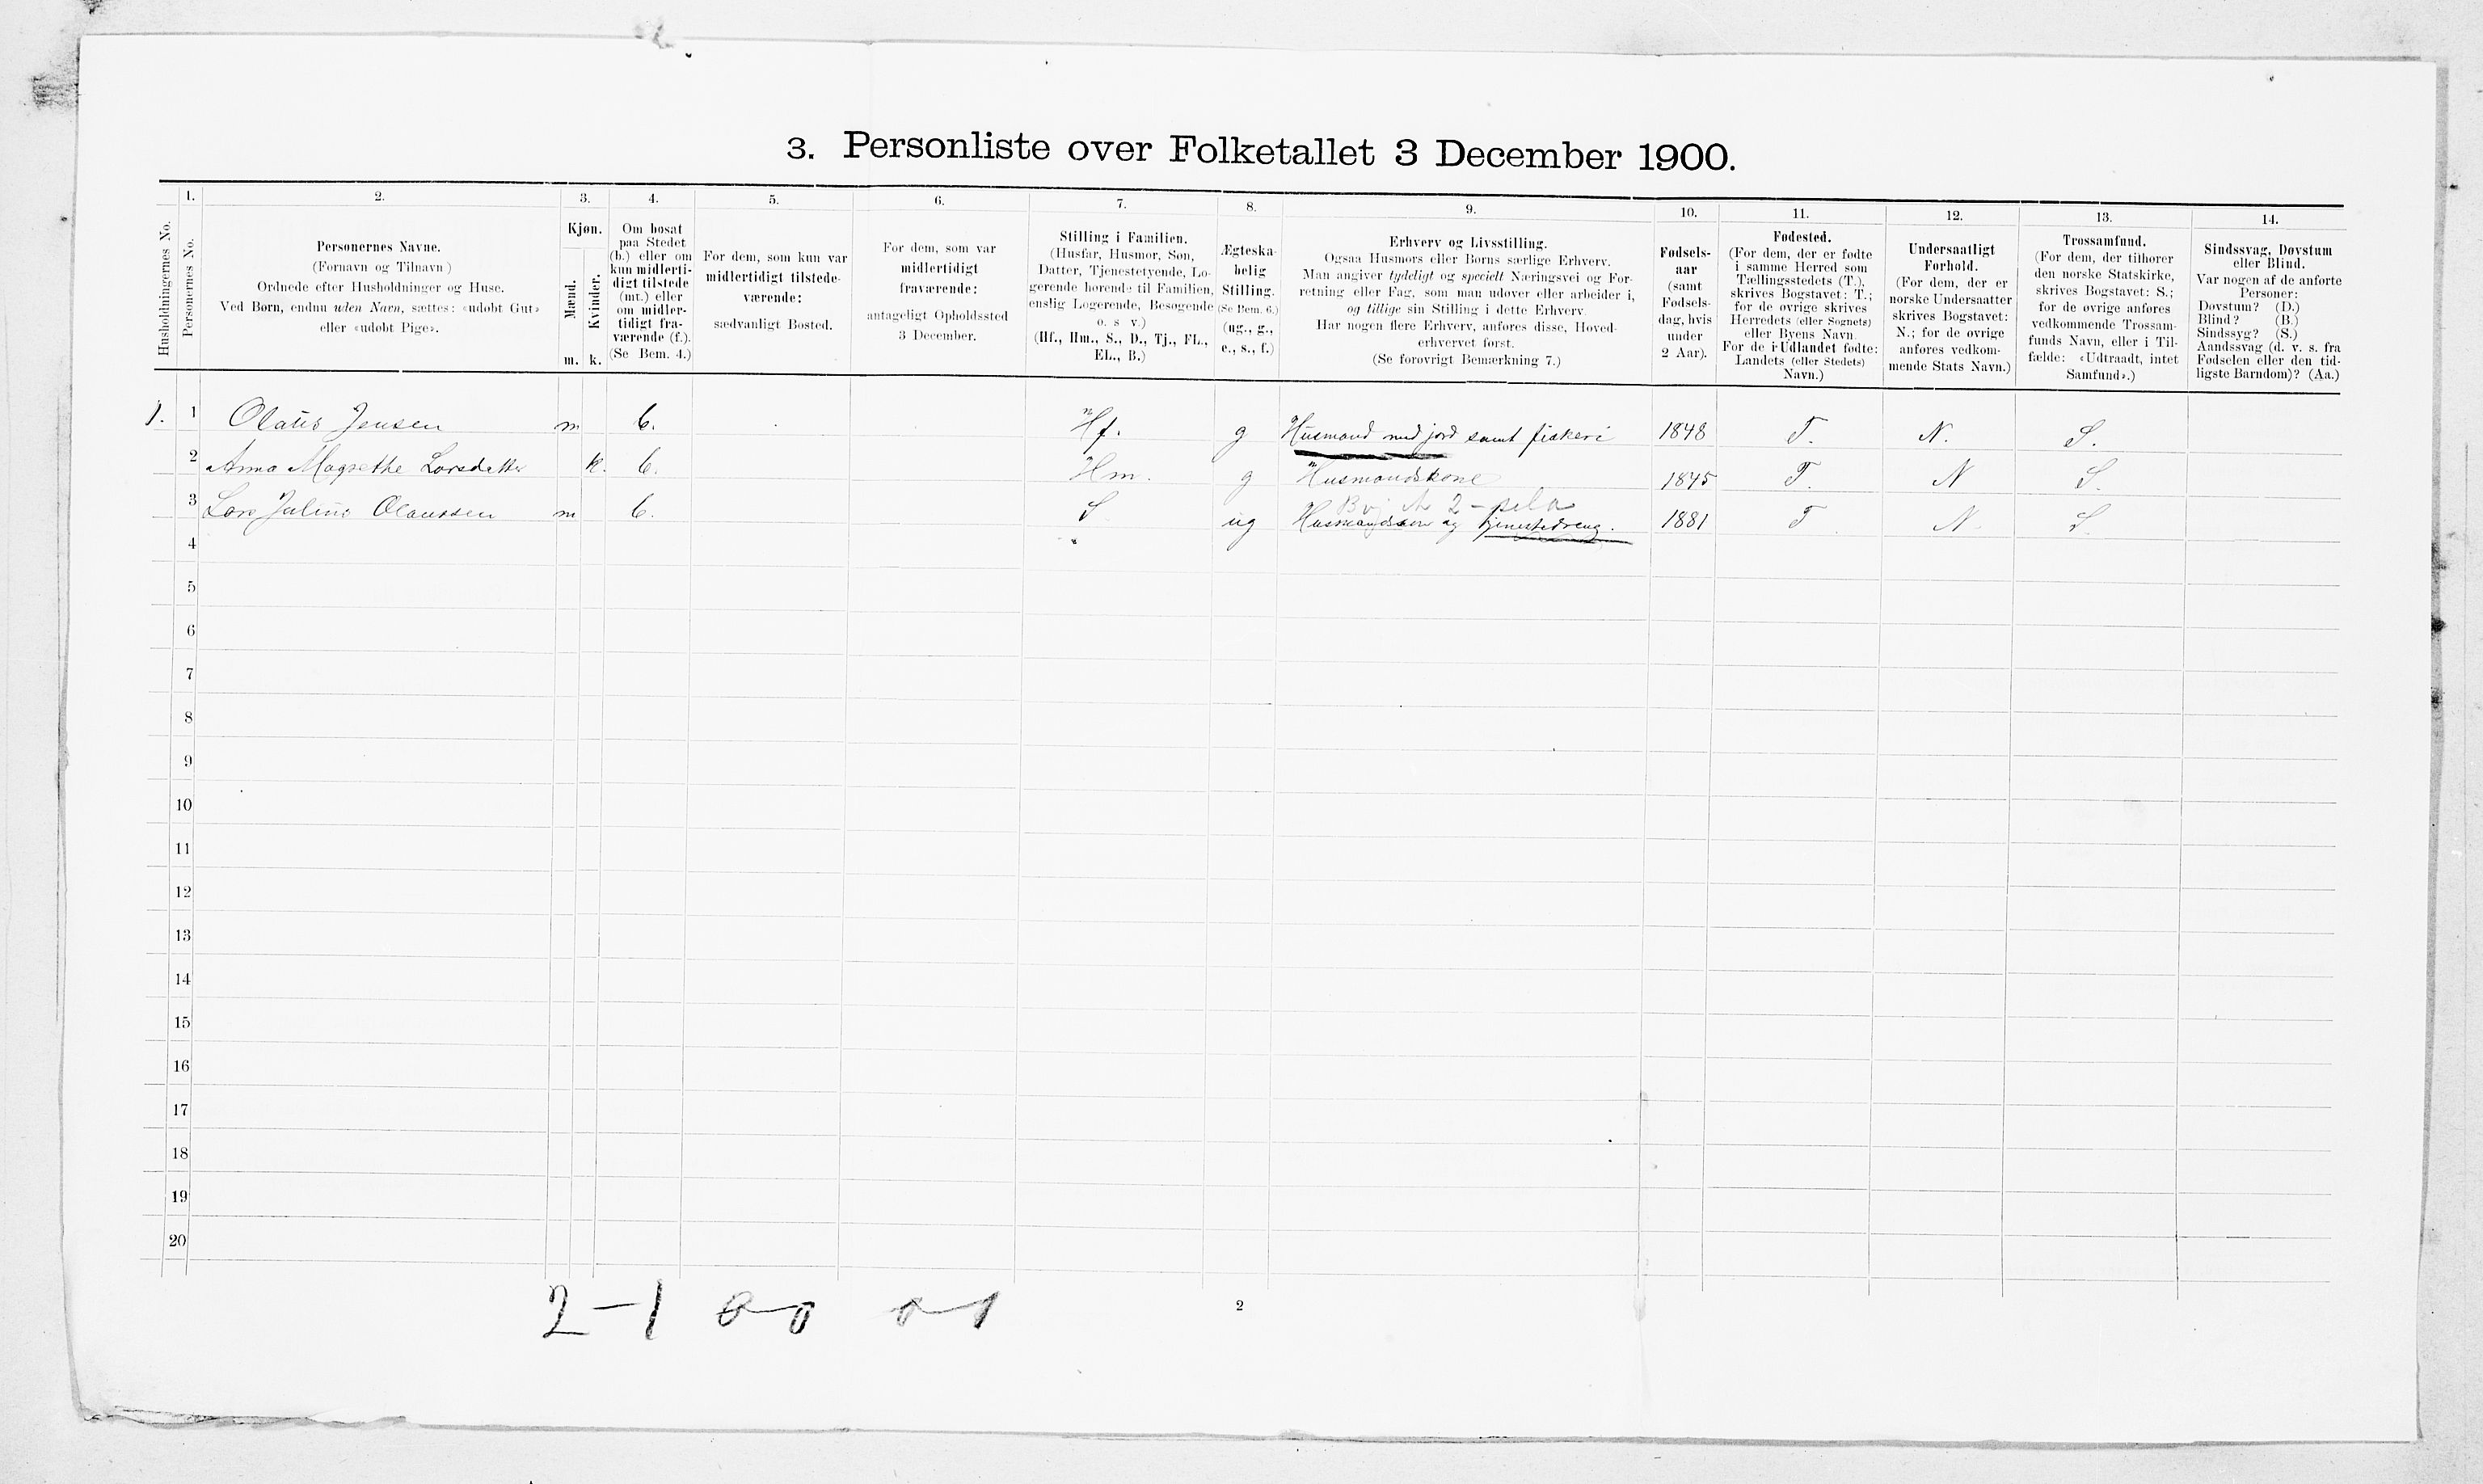 3. Personliste over Folketallet 3 December 1900.
1. 2. 3. 4. 5. 6. 7. 8. 9. 10. 11. 12. 13. 14.
Husholdningernes No.
Personernes No.
Personernes Navne.
(Fornavn og Tilnavn)
Ordnede efter Husholdninger og Huse.
Ved Børn, endnu uden Navn, sættes: «udøbt Gut»
eller «udøbt Pige».
Kjøn.
Mænd.
Kvinder.
m. k.
Om bosat
paa Stedet
(b.) eller om
kun midlerti-
digt tilstede
(mt.) eller
om midler-
tidigt fra-
værende (f.).
(Se Bem. 4.)
For dem, som kun var
midlertidigt tilstede-
værende:
sædvanligt Bosted.
For dem, som var
midlertidigt
fraværende:
antageligt Opholdssted
3 December.
Stilling i Familien.
(Husfar, Husmor, Søn,
Datter, Tjenestetyende, Lo-
gerende hørende til Familien,
enslig Logerende, Besøgende
o. s v.)
(Hf., Hm., S., D., Tj., FL.,
EL., B.)
Ægteska-
belig
Stilling.
(Se Bem. 6.)
(ug., g.,
e., s., f.)
Erhverv og Livsstilling.
Ogsaa Husmors eller Børns særlige Erhverv.
Man angiver tydeligt og specielt Næringsvei og For-
retning eller Fag, som man udøver eller arbeider i,
og tillige sin Stilling i dette Erhverv.
Har nogen flere Erhverv, anføres disse, Hoved-
erhvervet først.
(Se forøvrigt Bemærkning 7.)
Fødsels-
aar
(samt
Fødsels-
dag, hvis
under
2 Aar).
Fødested.
(For dem, der er fødte
i samme Herred som
Tællingsstedets (T.),
skrives Bogstavet: T.;
for de øvrige skrives
Herredets (eller Sognets)
eller Byens Navn.
For de i Udlandet fødte:
Landets (eller Stedets)
Navn.)
Undersaatligt
Forhold.
(For dem, der er
norske Undersaatter
skrives Bogstavet:
N.; for de øvrige
anføres vedkom-
mende Stats Navn.)
Trossamfund.
(For dem, der tilhører
den norske Statskirke,
skrives Bogstavet: S.;
for de øvrige anføres
vedkommende Trossam-
funds Navn, eller i Til-
fælde: «Udtraadt, intet
Samfund».)
Sindssvag, Døvstum
eller Blind.
Var nogen af de anførte
Personer:
Døvstum? (D.)
Blind? (B.)
Sindssyg? (S.)
Aandssvag (d. v. s. fra
Fødselen eller den tid-
ligste Barndom)? (Aa.)
1. 1 Olaus Jensen m b. Hf. g Husmand med jord samt fiskeri 1848 T. N. S.
2 Anna Magrethe Larsdatter k. b. Hm. g Husmandskone 1845 T. N S.
3 Lars Julius Olaussen m b. S. ug Husmandssøn og tjenestedreng. 1881 T N. S.
4
5
6
7
8
9
10
11
12
13
14
15
16
17
18
19
20
2 – 1 0 – 0 0 – 1
2